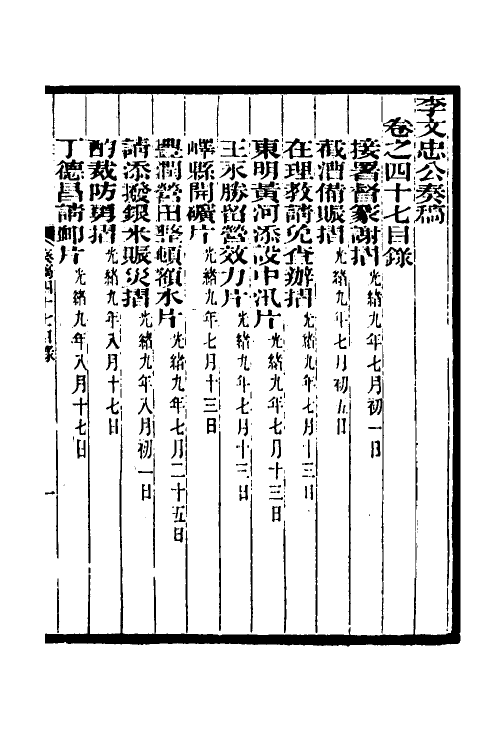 李文忠公奏稿
卷之四十七目錄
接署督篆謝摺光緒九年七月初一日
截漕備賑摺光緒九年七月初五日
在理教請免查辦摺光緒九年七月十三日
東明黃河添設中汛片光緒九年七月十三日
王永勝留營效力片光緒九年七月十三日
嶧縣開礦片光緒九年七月十三日
豐潤營田墾頓額水片光緒九年七月二十五日
請添撥銀米賑災摺光緒九年八月初一日
酌裁防勇摺光緒九年八月十七日
丁德昌請卹片光緒九年八月十七日
奏稿四十七目錄
一